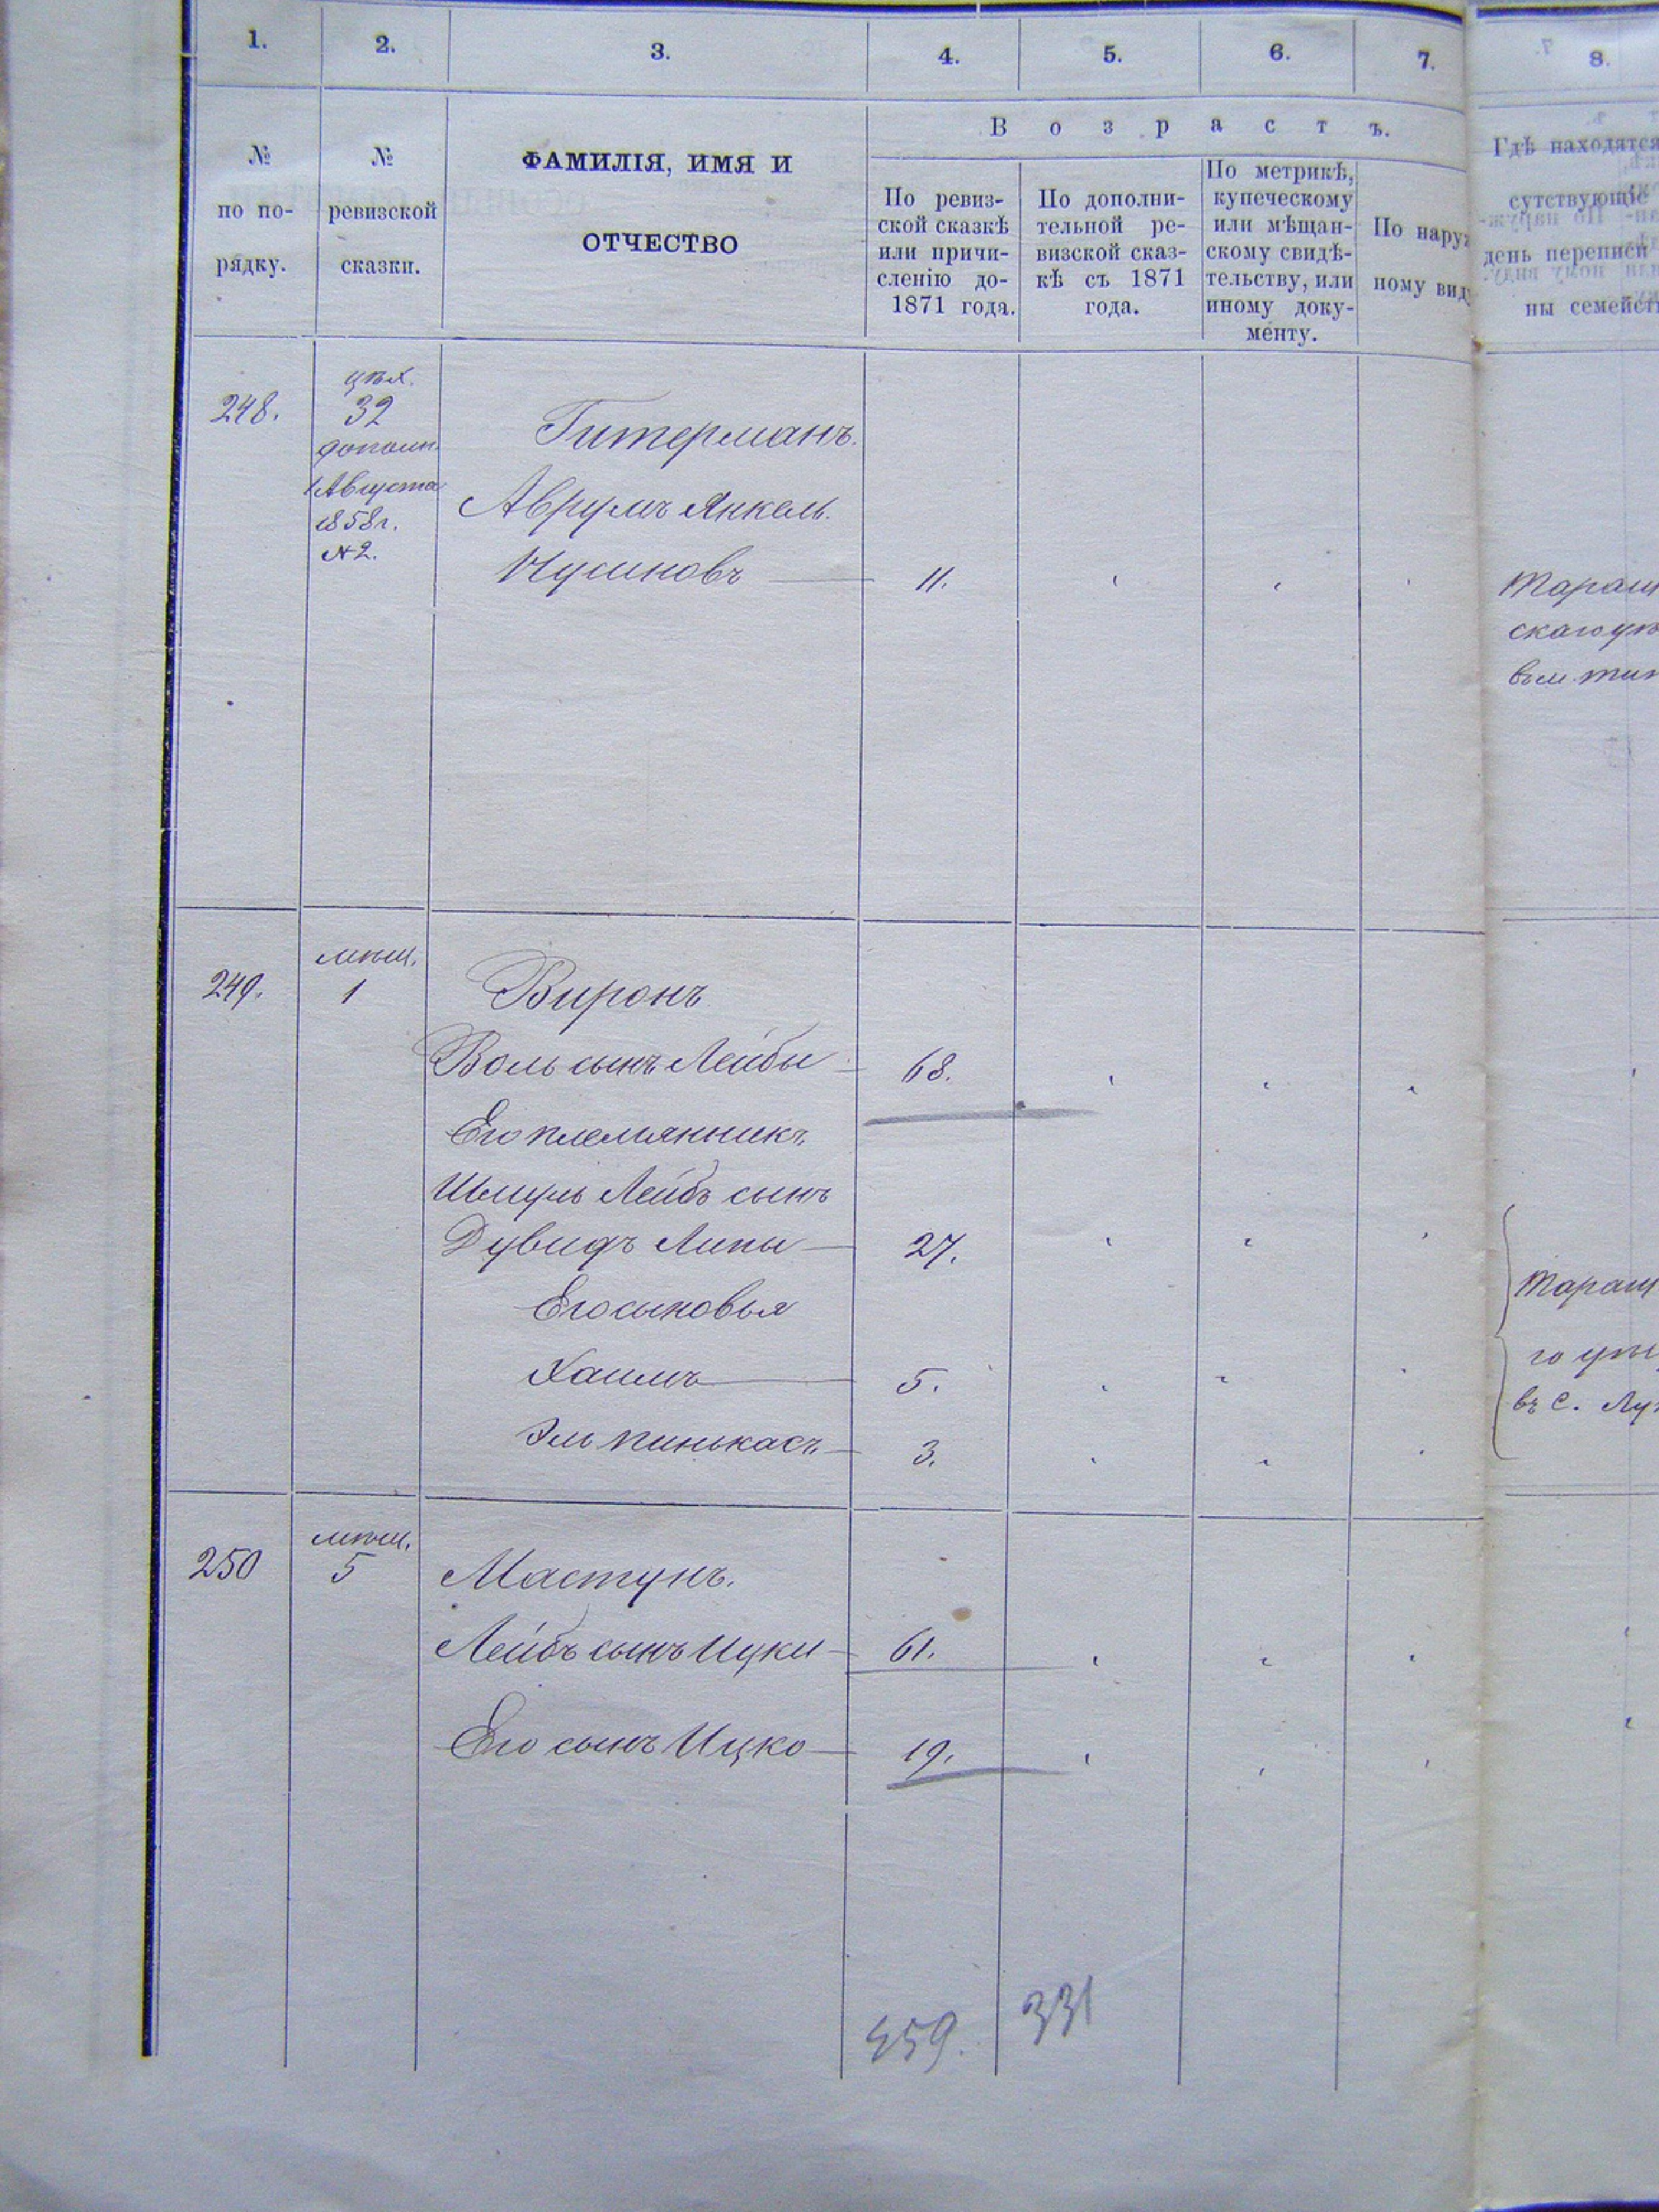 1. 2. 3. 4. 5. 6. 7. 8.
В о з р а с т ъ.
№ по по-рядку.
№ ревизской сказки.
ФАМИЛІЯ, ИМЯ И
ОТЧЕСТВО
По ревиз-
ской сказкѣ
или причи-
сленію до-
1871 года.
По дополни-
тельной ре-
визской сказ-
кѣ съ 1871
года.
По метрикѣ,
купеческому
или мѣщан-
скому свидѣ-
тельству, или
иному доку-
менту.
По наруж
ному виду
Гдѣ находятся
сутствующіе
день переписи
ны семейств
248.
цѣх.
32
дополн.
1 Августа
1858 г.
№ 2.
Гитерманъ.
Аврумъ Янкель.
Нусиновъ 11.
Таращ
скаго уѣ
249.
мѣщ.
1
Виронъ
Воль сынъ Лейбы 68.
Его племянникъ
Шмуль Лейбъ сынъ
Дувидъ Липы 27.
Его сыновья
Хаимъ 5.
Эль Пинькасъ 3.
Таращ
го уѣз
въ с. Лу
250
мѣщ.
5
Мастунъ.
Лейбъ сынъ Ицки 61.
Его сынъ Ицко 19.
459. 331